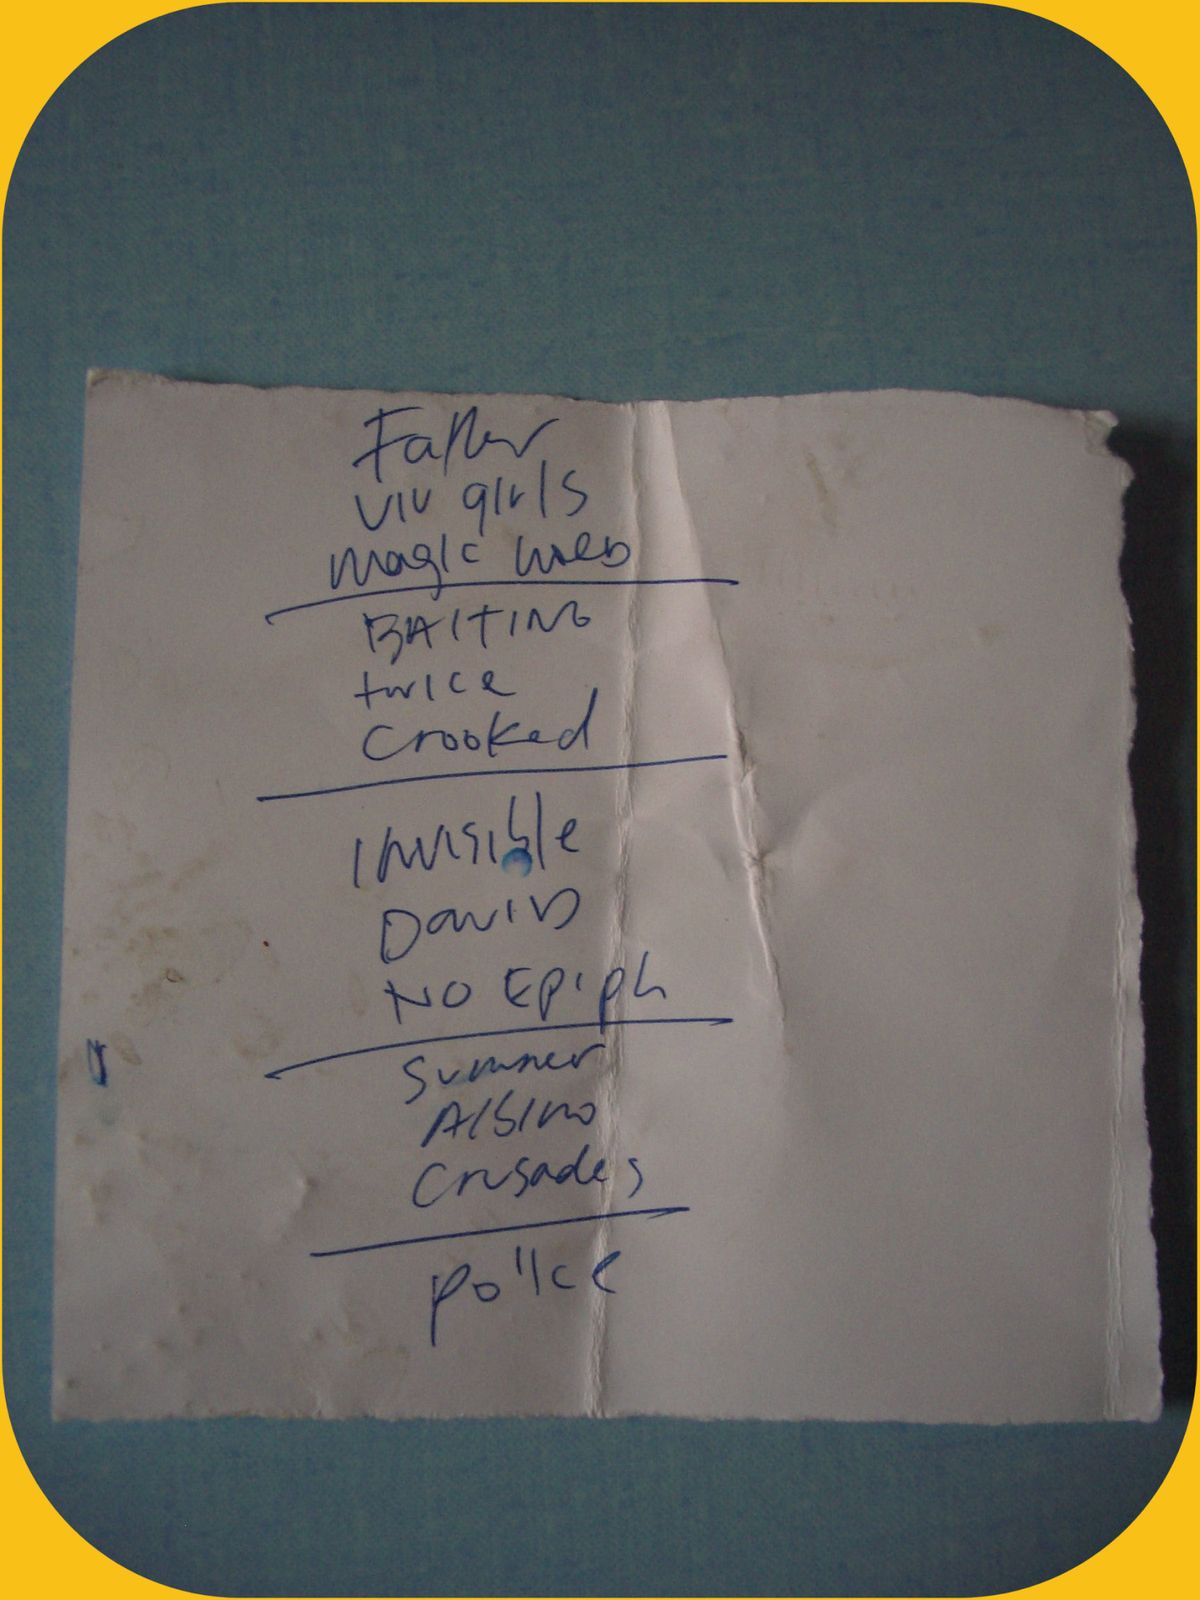 Father
viv girls
magic web
BAITING
twice
Crooked
INVISIble
DAVID
NO EpIph
Summer
Albino
Crusades
police